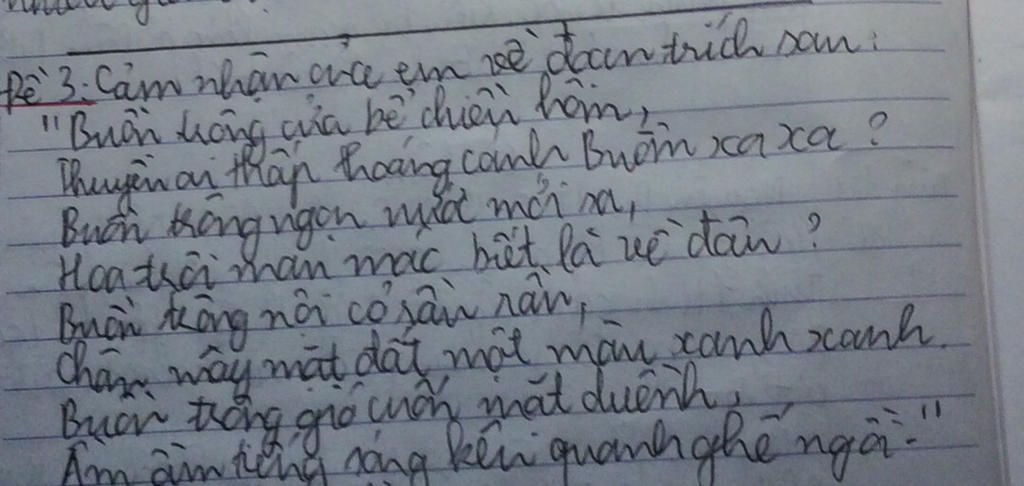 Đề 3: Cảm nhận của em về đoạn trích sau:
"Buồn trông cửa bể chiều hôm,
Thuyền ai thấp thoáng cánh Buồm xa xa?
Buồn trông ngọn nước mới sa,
Hoa trôi man mác biết là về đâu?
Buồn trông nội cỏ rầu rầu,
Chân mây mặt đất một màu xanh xanh.
Buồn trông gió cuốn mặt duềnh,
Ầm ầm tiếng sóng kêu quanh ghế ngồi."